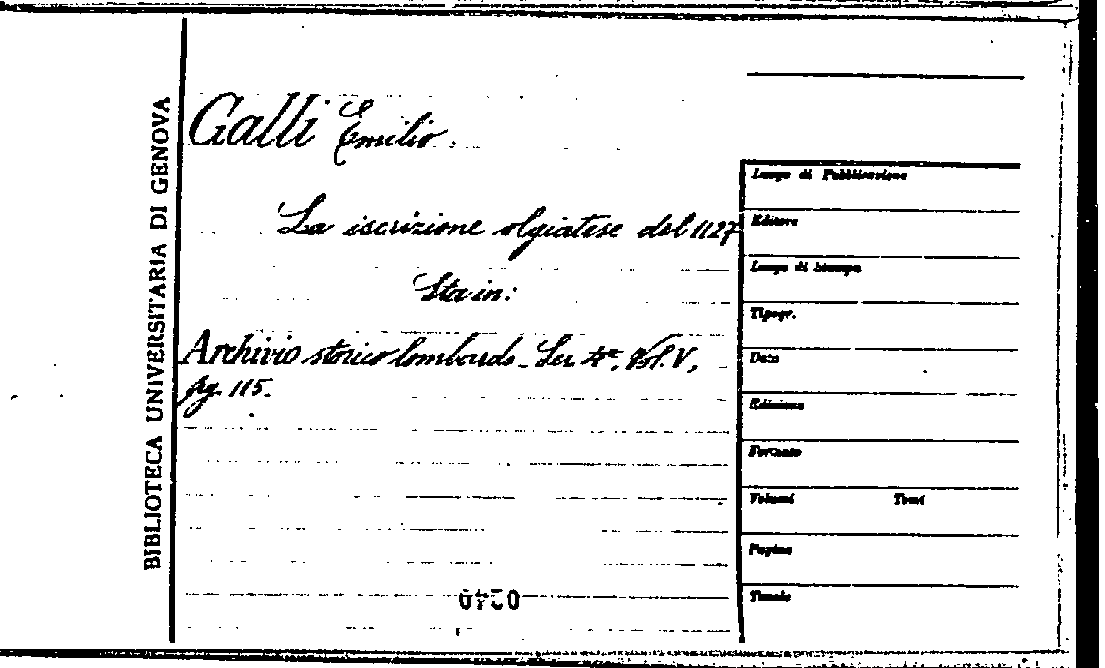 BIBLIOTECA UNIVERSITARIA DI GENOVA
Galli Emilio.
La iscrizione olgiatese del 1127
Sta in:
Archivio storico lombardo_ Ser. 4ª, Vol. V,
pg. 115.
Luogo di Pubblicazione
Editore
Luogo di Stampa
Tipogr.
Data
Edizione
Formato
Volumi Tomi
Pagine